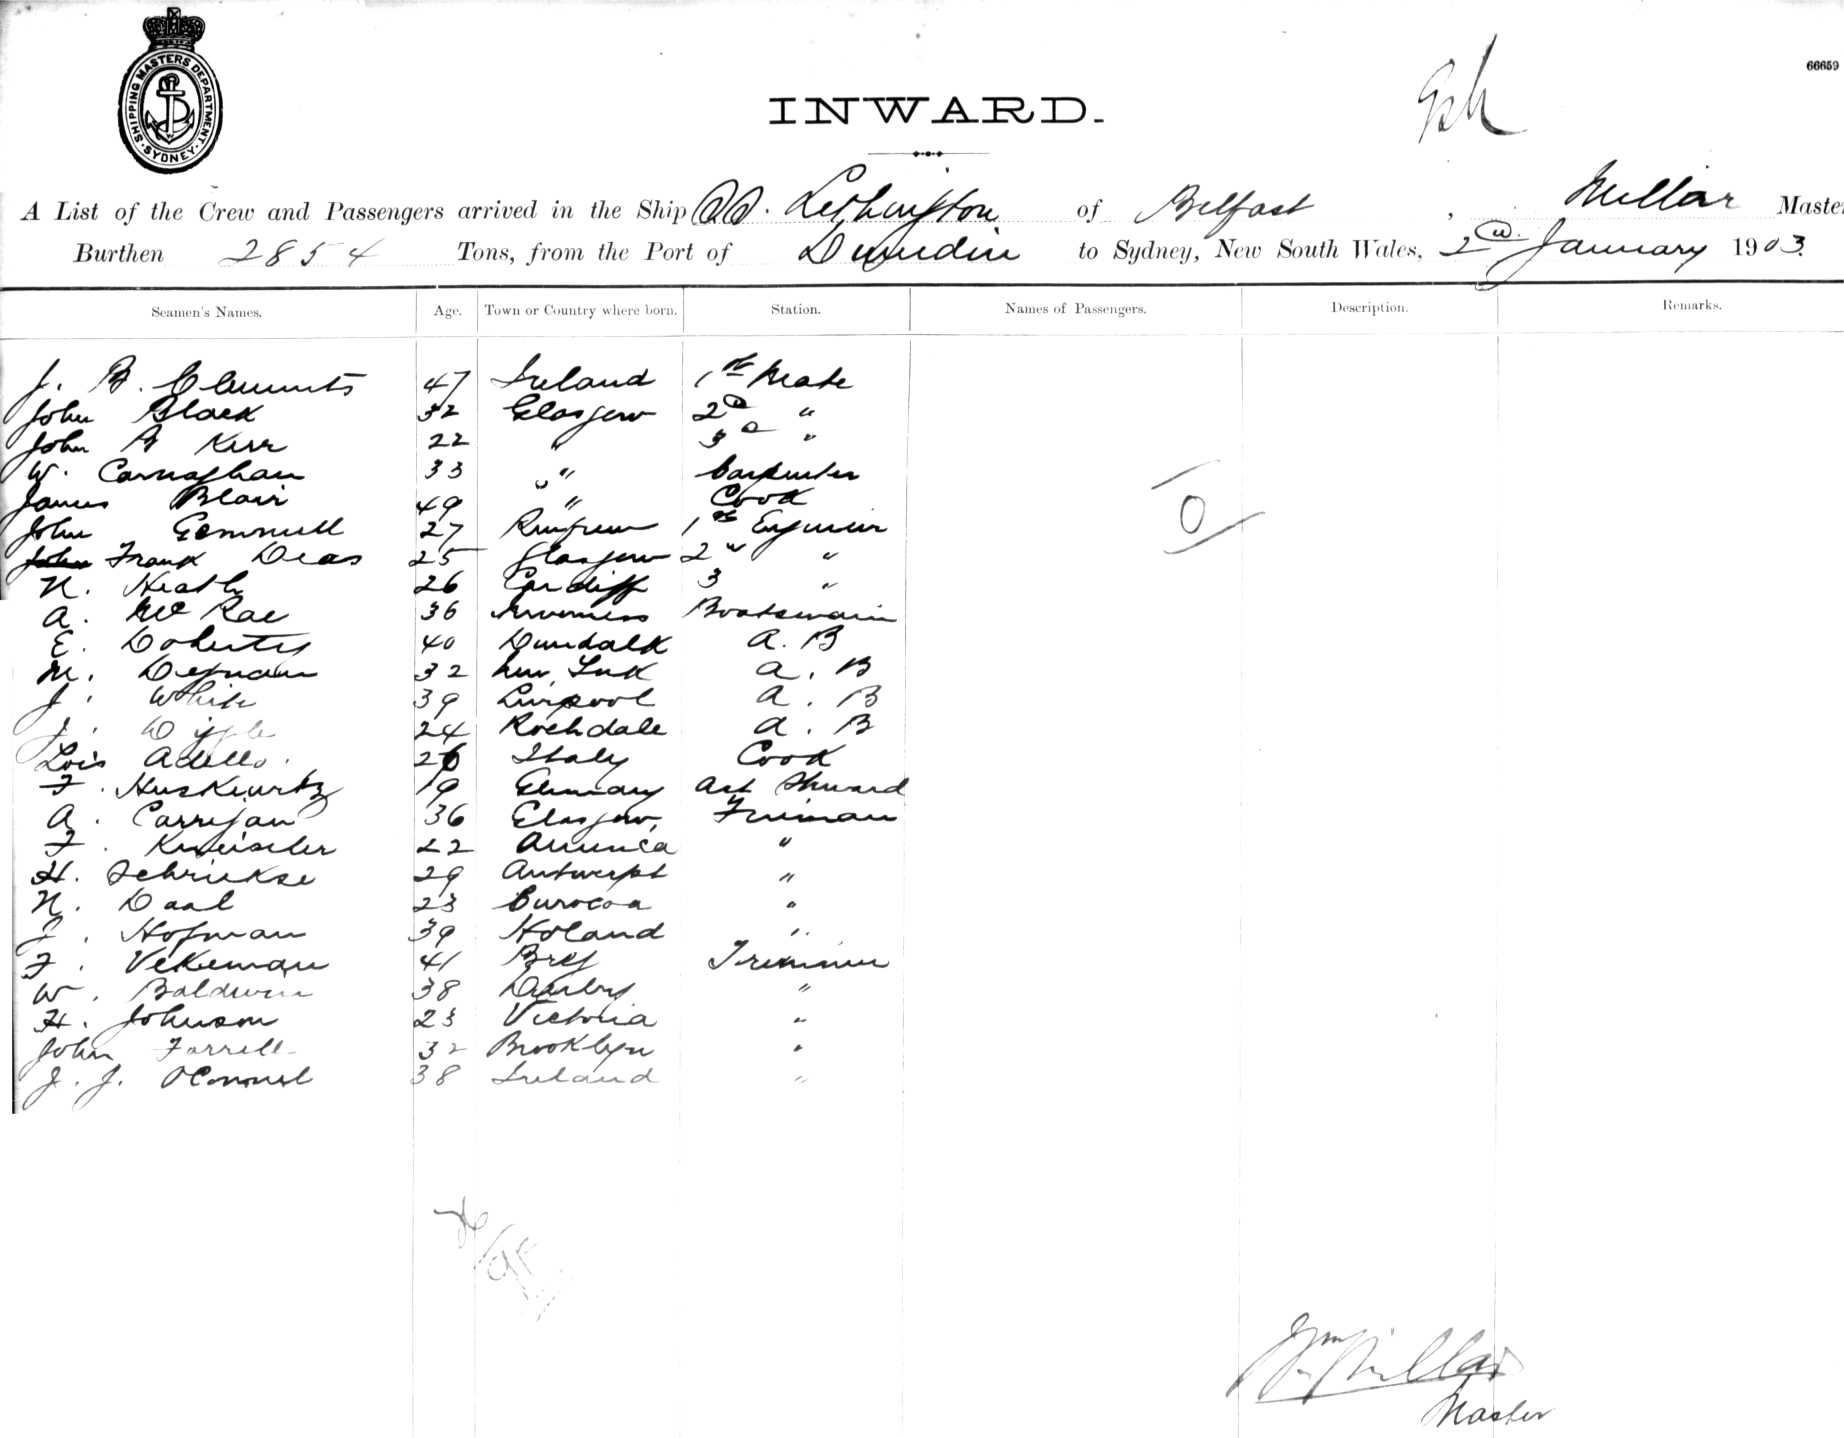 SHIPPING MASTERS DEPARTMENT · SYDNEY ·
66659
INWARD.
A List of the Crew and Passengers arrived in the Ship SS. Lethington of Belfast, Millar Master
Burthen 2854 Tons, from the Port of Dunedin to Sydney, New South Wales, 2nd January 1903
Seamen's Names. Age. Town or Country where born. Station. Names of Passengers. Description. Remarks.
J. B. Clements 47 Ireland 1st Mate
John Black 32 Glasgow 2d "
John A Kerr 22 " 3d "
W. Carnaghan 33 " Carpenter
James Blair 49 " Cook
John Gemmell 27 Renfrew 1st Engineer
John Frank Deas 25 Glasgow 2nd "
N. Heath 26 Cardiff 3 "
A. McRae 36 Inverness Boatswain
E. Doherty 40 Dundalk A. B
M. Degnam 32 A. B
J. White 39 Liverpool A. B
J. 24 Rochdale A. B
Lois Adello. 26 Italy Cook
F. Huskewitz 19 Germany Ast Steward
A. Carrigan 36 Glasgow, Fireman
F. 22 America "
H. Schriekse 29 Antwerpt "
N. Daal 23 Curocoa "
J. Hofman 39 Holand "
F. Vekeman 41 Trimmer
W. Baldwin 38 Derby "
H. Johnson 23 Victoria "
John Farrell 32 Brooklyn "
J. J. OConnel 38 Ireland "
0
Wm Millar
Master